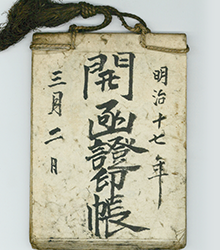 明治十七年
開函證印帳
三月二日